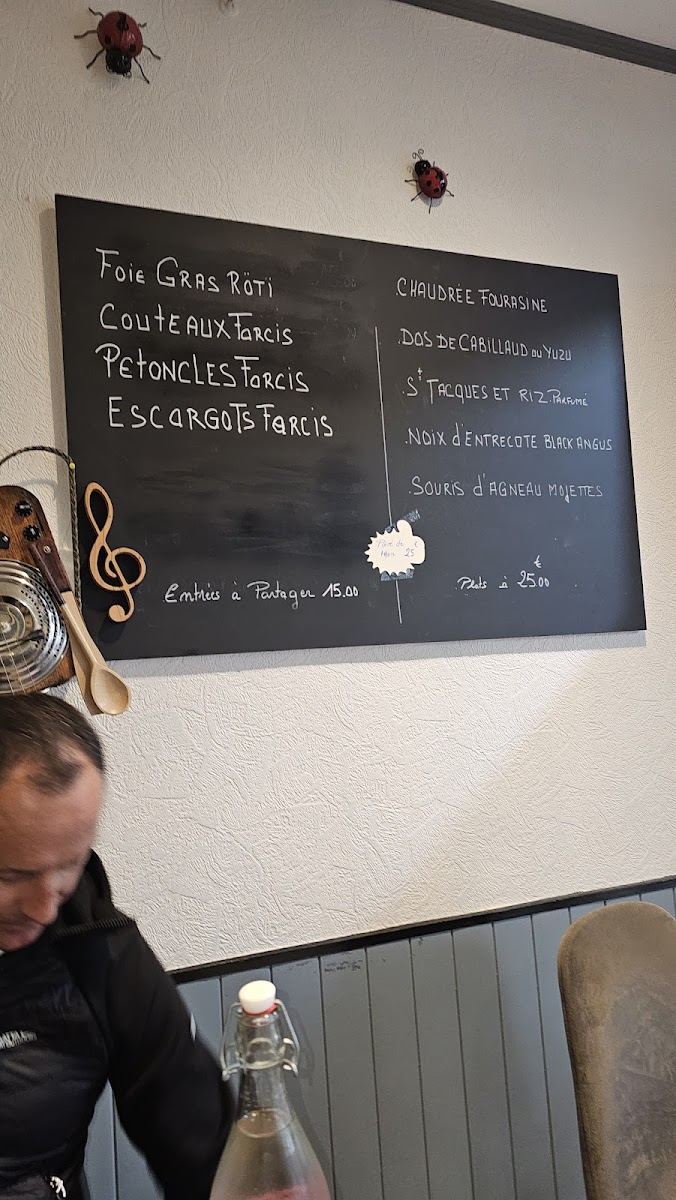 Foie Gras Röti
Couteaux Farcis
Petoncles Farcis
Escargots Farcis
Entrées à Partager 15.00
Chaudrée Fourasine
Dos de Cabillaud ou Yuzu
St Jacques et Riz Parfumé
Noix d'Entrecote Black Angus
Souris d'Agneau Mojettes
€
Plats à 25.00
25